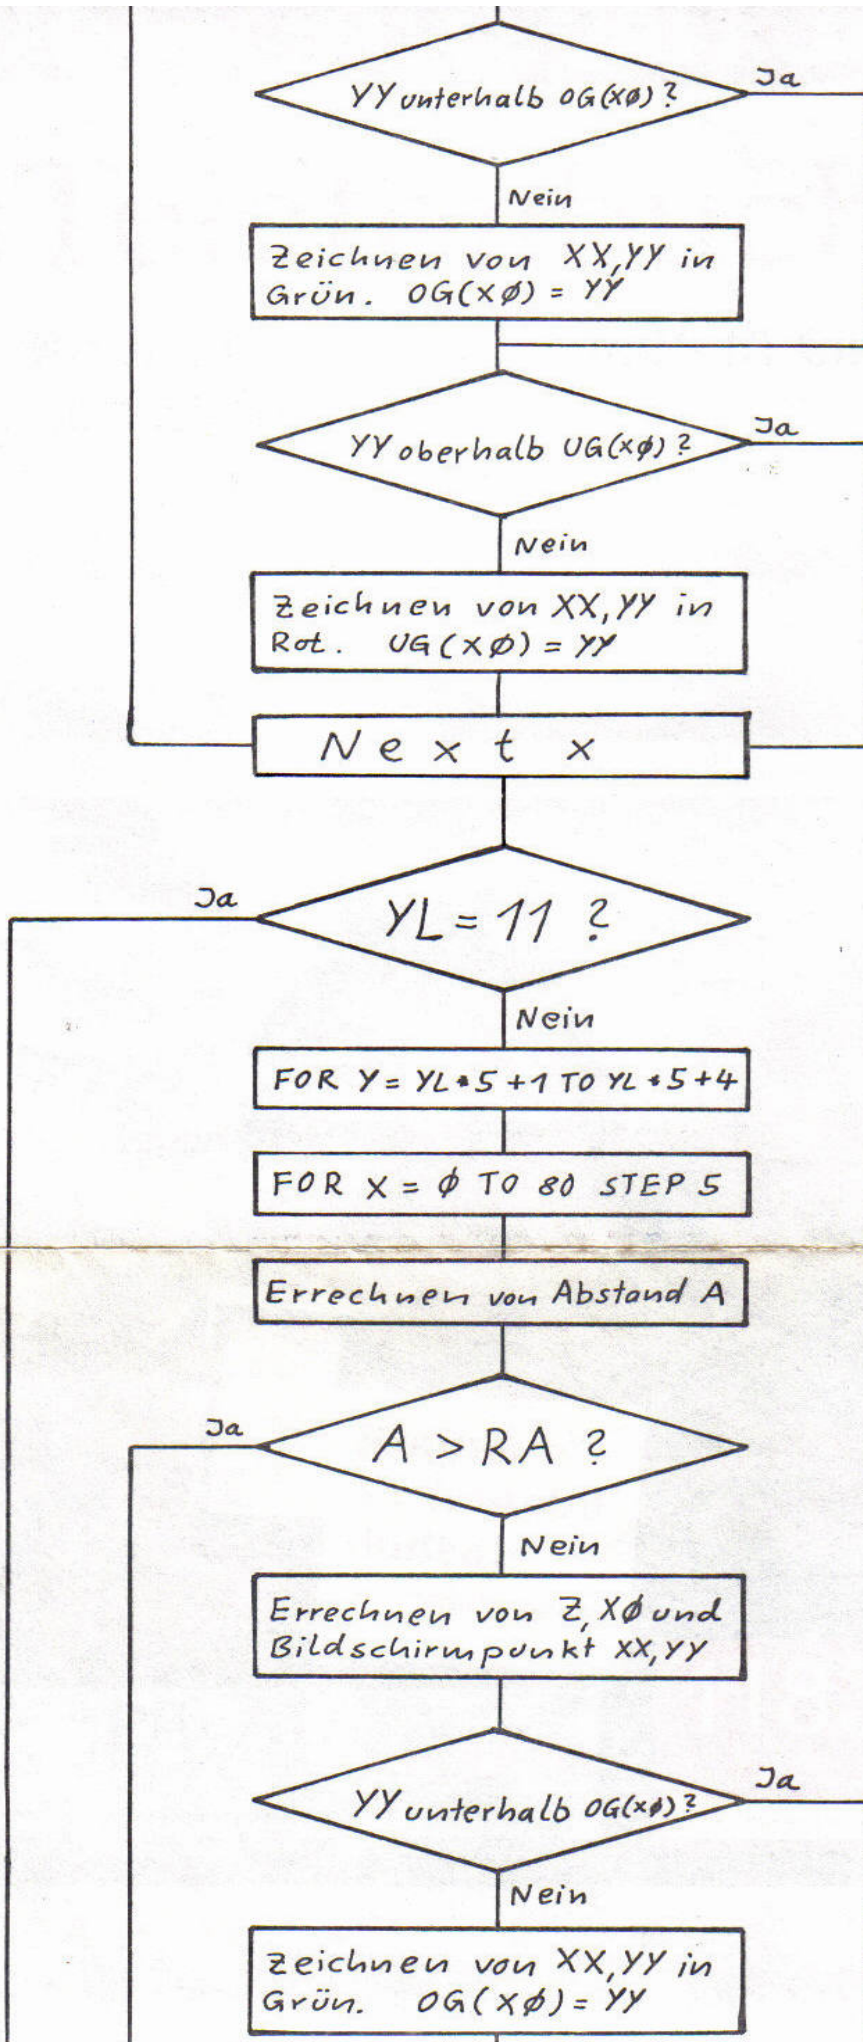 YY unterhalb OG(XØ)?
Ja
Nein
Zeichnen von XX,YY in
Grün. OG(XØ) = YY
YY oberhalb UG(XØ)?
Ja
Nein
Zeichnen von XX,YY in
Rot. UG(XØ) = YY
Next x
Ja
YL = 11 ?
Nein
FOR Y = YL*5+1 TO YL*5+4
FOR X = Ø TO 80 STEP 5
Errechnen von Abstand A
Ja
A > RA ?
Nein
Errechnen von Z, XØ und
Bildschirmpunkt XX,YY
YY unterhalb OG(XØ)?
Ja
Nein
Zeichnen von XX,YY in
Grün. OG(XØ) = YY